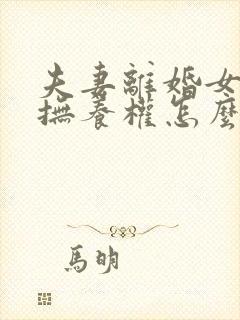 夫妻離婚女
撫養權怎麼
馬明